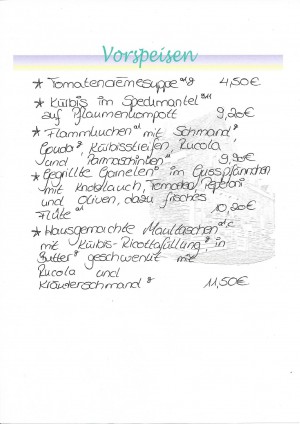 Vorspeisen
* Tomatencrèmesuppe a,g 4,50€
* Kürbis im Speckmantel
auf Pflaumenkompott 9,20€
* Flammkuchen a1 mit Schmand g,
Gouda g, Kürbisstreifen, Rucola
und Parmaschinken 9,90€
* Gegrillte Garnelen im Gusspfännchen
mit Knoblauch, Tomaten/Peperoni
und Oliven, dazu frisches
Flûte a1 10,20€
* Hausgemachte Maultaschen a1,c
mit Kürbis-Ricottafüllung g in
Butter g geschwenkt mit
Rucola und
Kräuterschmand g 11,50€